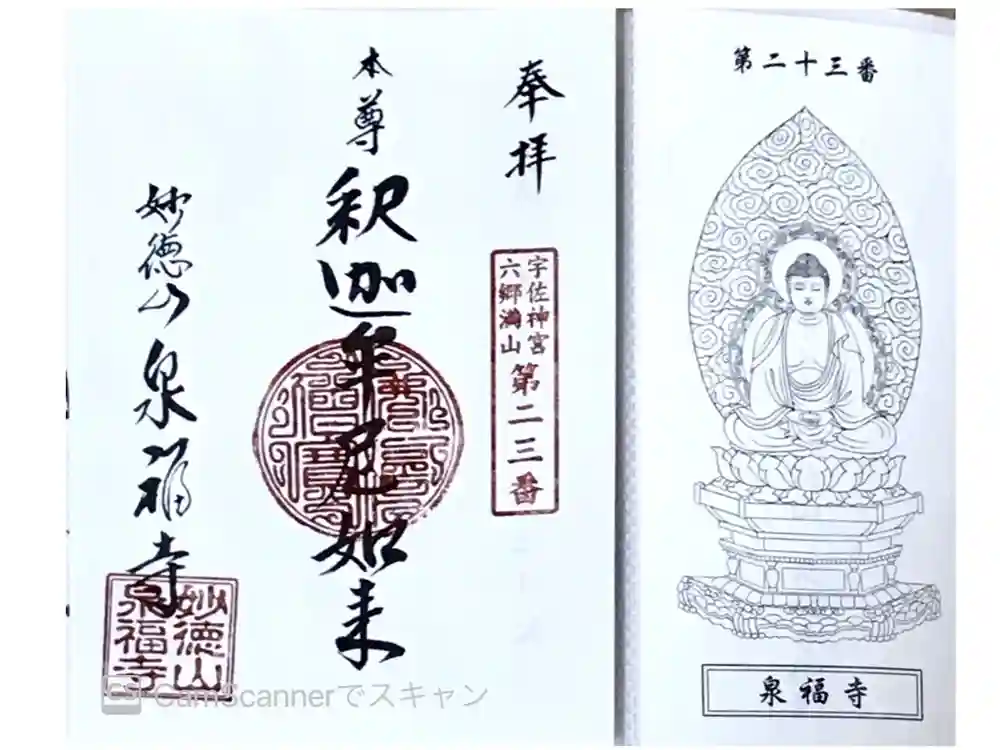 奉拝
宇佐神宮
六郷満山
第二三番
本尊
釈迦牟尼如来
妙徳山
泉福寺
妙徳山
泉福寺
第二十三番
泉福寺
CamScannerでスキャン